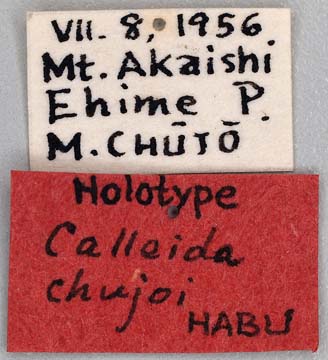 VII. 8, 1956
Mt. Akaishi
Ehime P.
M. CHŪJŌ
Holotype
Calleida
chujoi
HABU